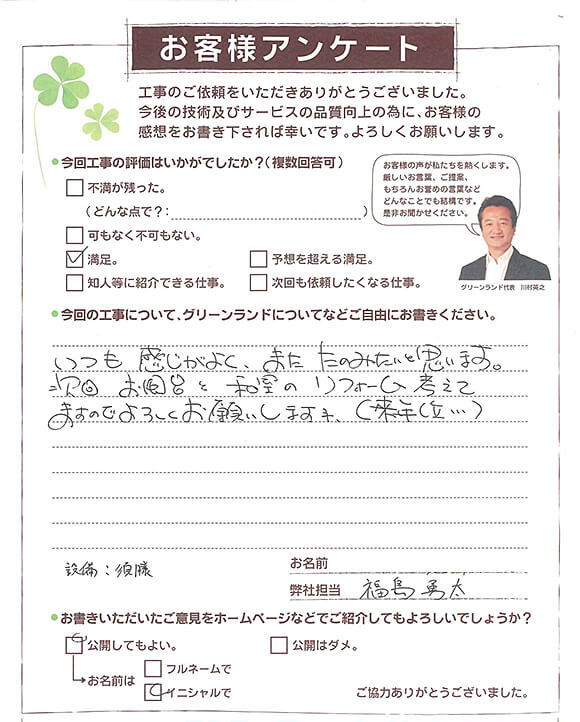 お客様アンケート
工事のご依頼をいただきありがとうございました。
今後の技術及びサービスの品質向上の為に、お客様の
感想をお書き下されば幸いです。よろしくお願いします。
今回工事の評価はいかがでしたか?(複数回答可)
不満が残った。
(どんな点で?: )
可もなく不可もない。
満足。
予想を超える満足。
知人等に紹介できる仕事。
次回も依頼したくなる仕事。
お客様の声が私たちを熱くします。
厳しいお言葉、ご提案、
もちろんお誉めの言葉など
どんなことでも結構です。
是非お聞かせください。
グリーンランド代表 川村英之
今回の工事について、グリーンランドについてなどご自由にお書きください。
いつも 感じがよく、また たのみたいと思います。
次回 お風呂と 和室の リフォーム 考えて
ますのでよろしくお願いします。(来年位…)
設備:須藤
お名前
弊社担当 福島 勇太
お書きいただいたご意見をホームページなどでご紹介してもよろしいでしょうか?
公開してもよい。
公開はダメ。
お名前は
フルネームで
イニシャルで
ご協力ありがとうございました。